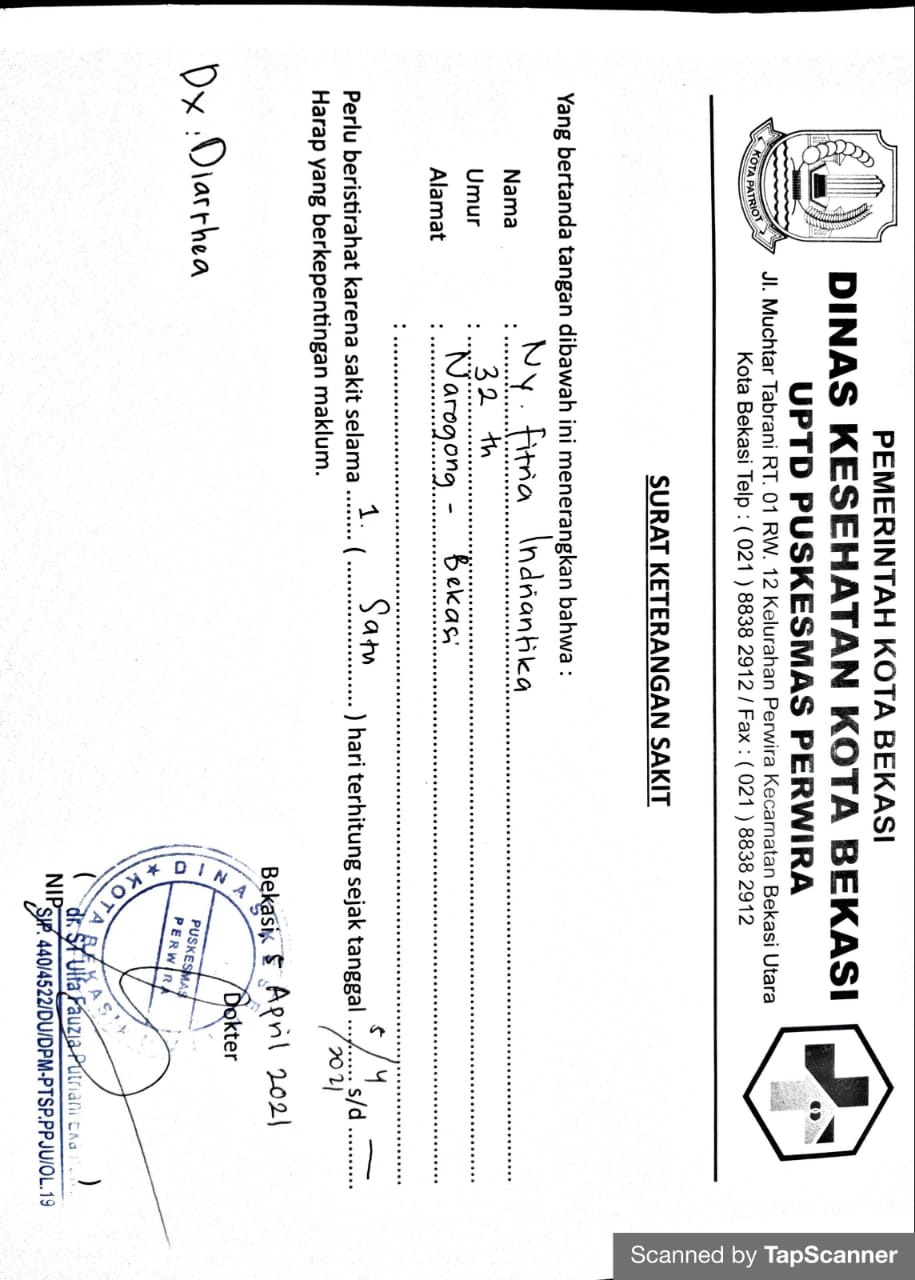 PEMERINTAH KOTA BEKASI
DINAS KESEHATAN KOTA BEKASI
UPTD PUSKESMAS PERWIRA
Jl. Muchtar Tabrani RT. 01 RW. 12 Kelurahan Perwira Kecamatan Bekasi Utara
Kota Bekasi Telp : ( 021 ) 8838 2912 / Fax : ( 021 ) 8838 2912
KOTA PATRIOT
SURAT KETERANGAN SAKIT
Yang bertanda tangan dibawah ini menerangkan bahwa :
Nama : Ny. Fitria Indriantika
Umur : 32 th
Alamat : Narogong - Bekasi
:
Perlu beristirahat karena sakit selama 1. ( Satu ) hari terhitung sejak tanggal 5/4/2021 s/d —
Harap yang berkepentingan maklum.
Bekasi, 5 April 2021
Dokter
Dx : Diarrhea
DINAS KES
PUSKESMAS
PERWIRA
KOTA BEKASI
( dr. St Ulfa Fauzia Putriani )
NIP
SIP. 440/4522/DU/DPM-PTSP.PPJU/OL.19
Scanned by TapScanner